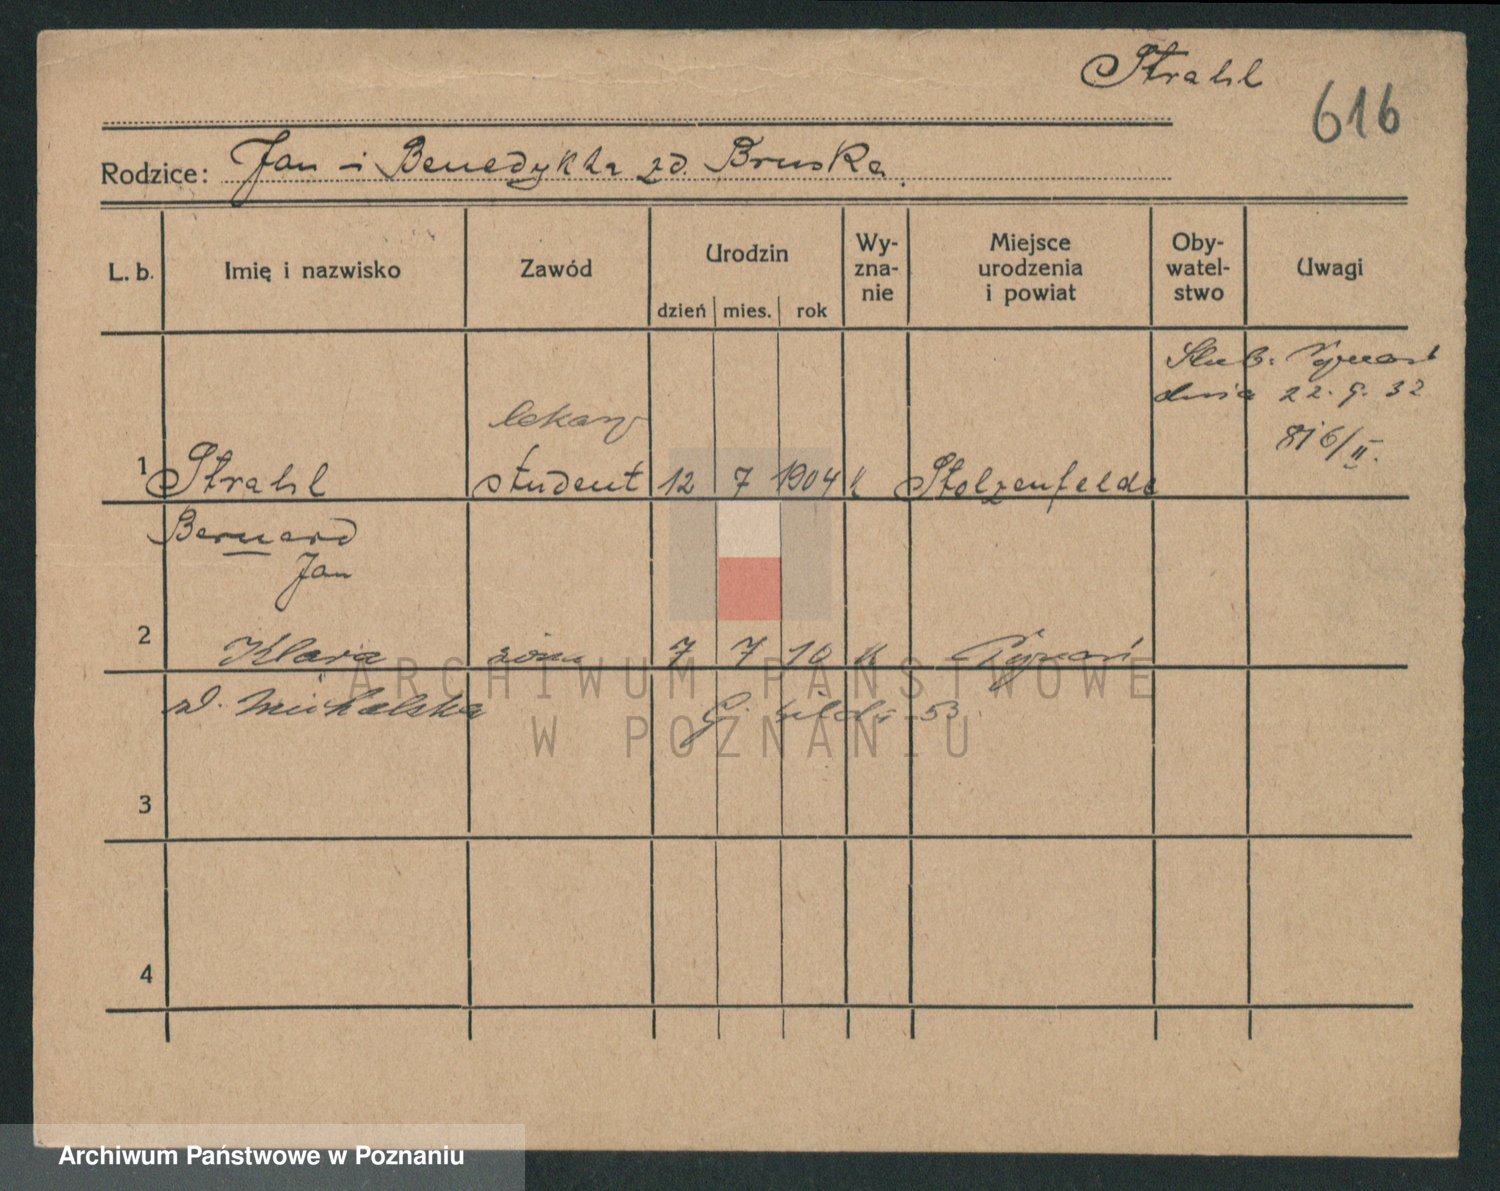 Strahl
616
Rodzice: Jan i Benedykta zd. Bruska.
L. b. Imię i nazwisko Zawód Urodzin dzień mies. rok Wy-zna-nie Miejsce urodzenia i powiat Oby-watel-stwo Uwagi
Ślub: Poznań
dnia 22. 9. 32
816/II.
lekarz
1 Strahl student 12 7 1904 k Stolzenfelde
Bernard
Jan
2 Klara żona 7 7 10 k Poznań
zd. Michalska G. Wilda 53
3
4
ARCHIWUM PAŃSTWOWE
W POZNANIU
Archiwum Państwowe w Poznaniu